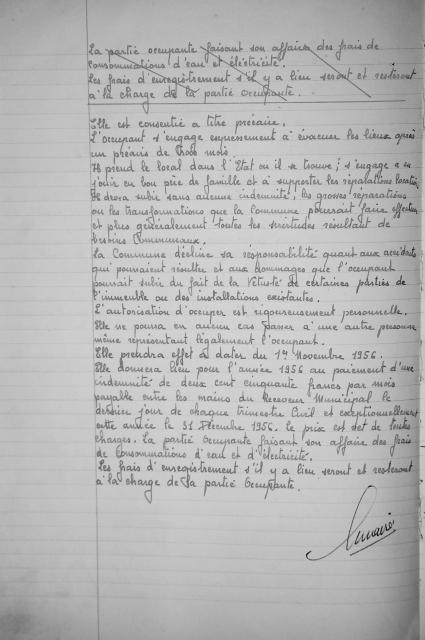 La partie occupante faisant son affaire des frais de
consommations d'eau et électricité.
Les frais d'enregistrement s'il y a lieu seront et resteront
à la charge de la partie occupante.
Elle est consentie a titre précaire.
L'occupant s'engage expressément à évacuer les lieux après
un préavis de trois mois.
Il prend le local dans l'Etat ou il se trouve; s'engage a en
jouir en bon père de famille et à supporter les réparations locatives
Il devra subir sans aucune indemnité, les grosses réparations
ou les transformations que la Commune pourrait faire effectuer
et plus généralement toutes les servitudes résultant de
besoins Communaux.
La Commune décline sa responsabilité quant aux accidents
qui pourraient résulter et aux dommages que l'occupant
pourrait subir du fait de la Vétusté de certaines parties de
l'immeuble ou des installations existantes.
L'autorisation d'occuper est rigoureusement personnelle.
Elle ne pourra en aucun cas passer à une autre personne
même représentant légalement l'occupant.
Elle prendra effet à dater du 1er Novembre 1956.
Elle donnera lieu pour l'année 1956 au paiement d'une
indemnité de deux cent cinquante francs par mois
payable entre les mains du Receveur Municipal le
dernier jour de chaque trimestre Civil et exceptionnellement
cette année le 31 Décembre 1956. Le prix est net de toutes
charges. La partie Occupante faisant son affaire des frais
de Consommations d'eau et d'électricité.
Les frais d'enregistrement s'il y a lieu seront et resteront
à la charge de la partie Occupante.